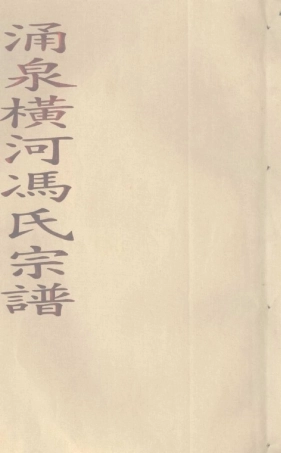 涌泉橫河馮氏宗譜